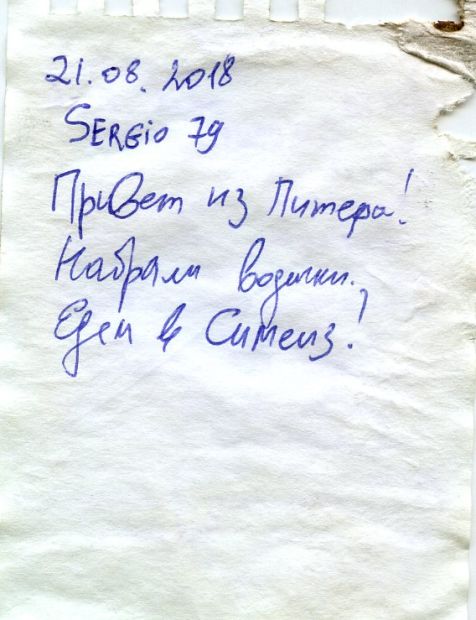 21.08.2018
SERGIO 79
Привет из Питера!
Набрали водички,
Едем в Симеиз!